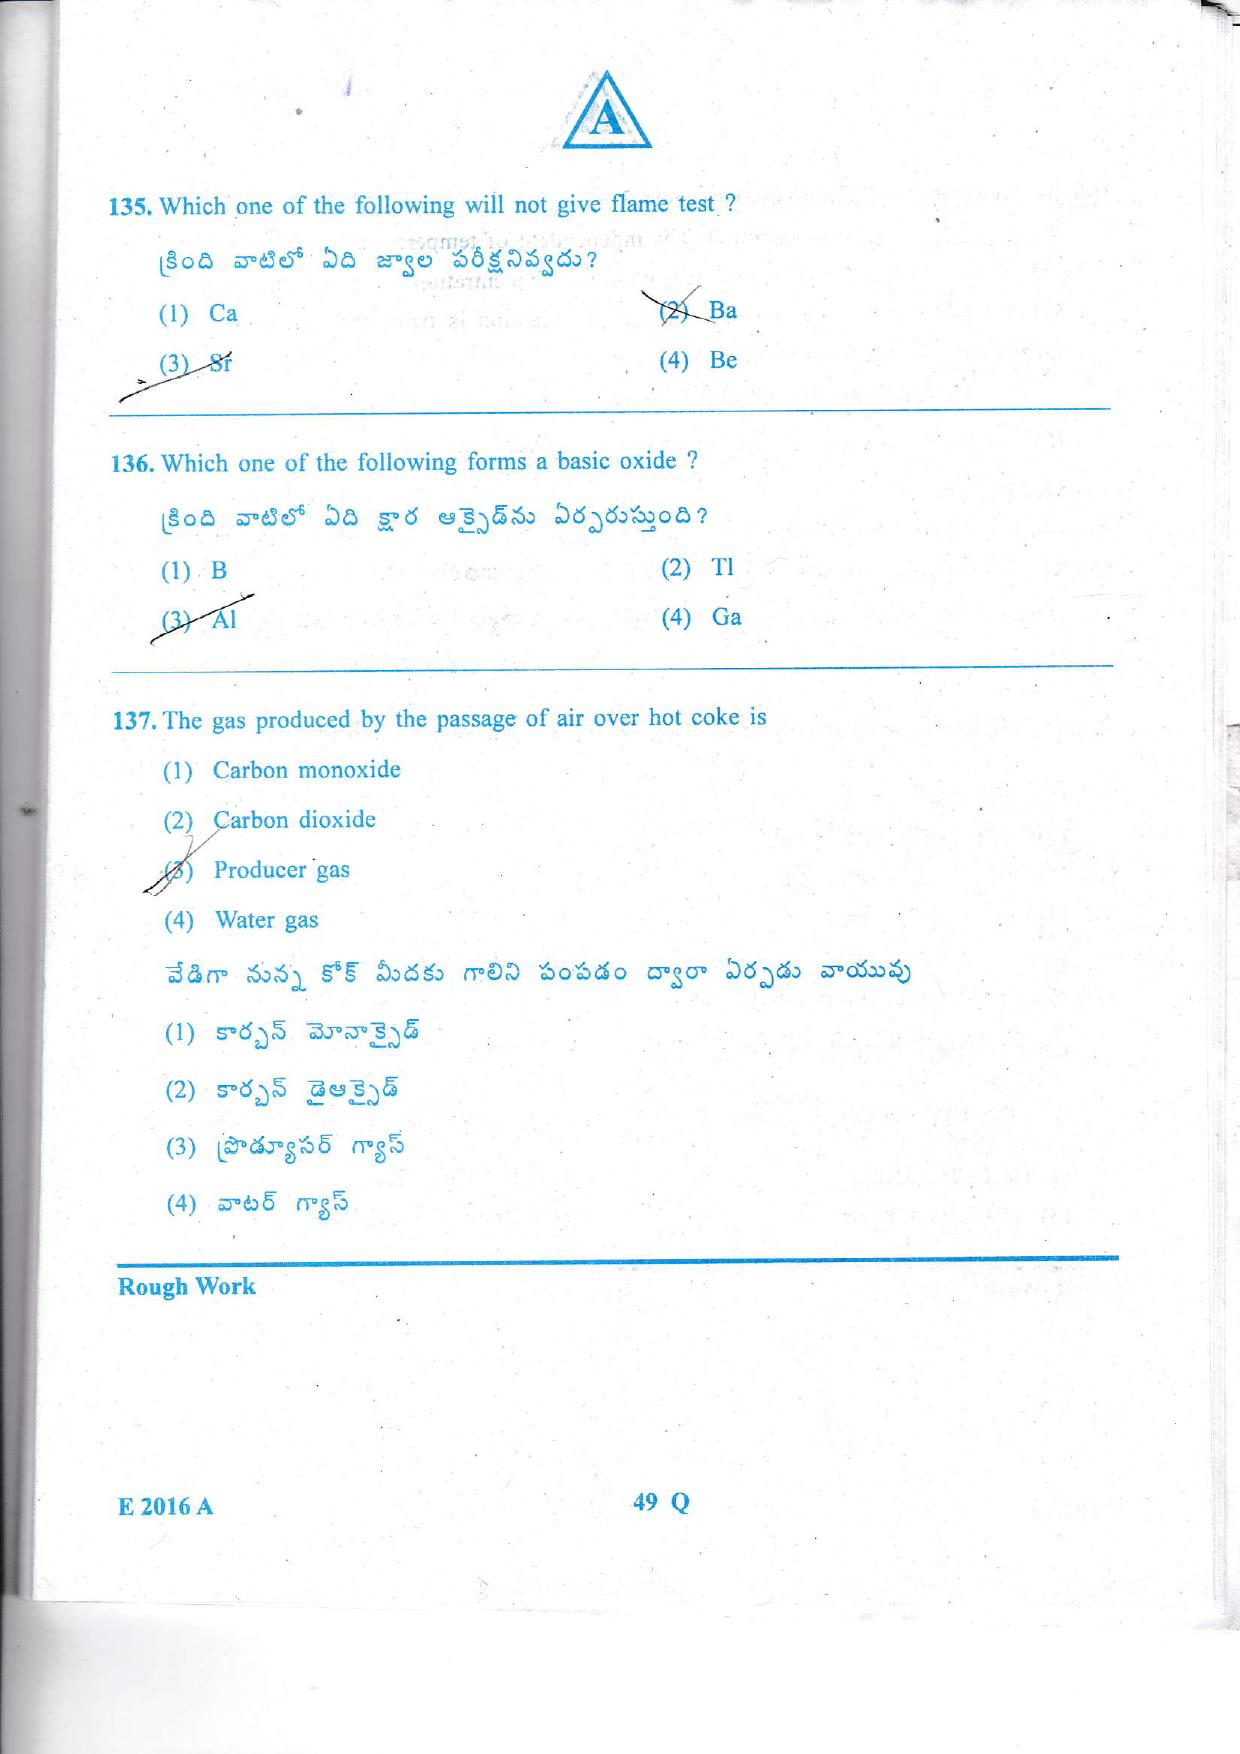 A
135. Which one of the following will not give flame test ?
క్రింది వాటిలో ఏది జ్వాల పరీక్షనివ్వదు?
(1) Ca (2) Ba
(3) Sr (4) Be
136. Which one of the following forms a basic oxide ?
క్రింది వాటిలో ఏది క్షార ఆక్సైడ్‌ను ఏర్పరుస్తుంది?
(1) B (2) Tl
(3) Al (4) Ga
137. The gas produced by the passage of air over hot coke is
(1) Carbon monoxide
(2) Carbon dioxide
(3) Producer gas
(4) Water gas
వేడిగా నున్న కోక్ మీదకు గాలిని పంపడం ద్వారా ఏర్పడు వాయువు
(1) కార్బన్ మోనాక్సైడ్
(2) కార్బన్ డైఆక్సైడ్
(3) ప్రొడ్యూసర్ గ్యాస్
(4) వాటర్ గ్యాస్
Rough Work
E 2016 A 49 Q